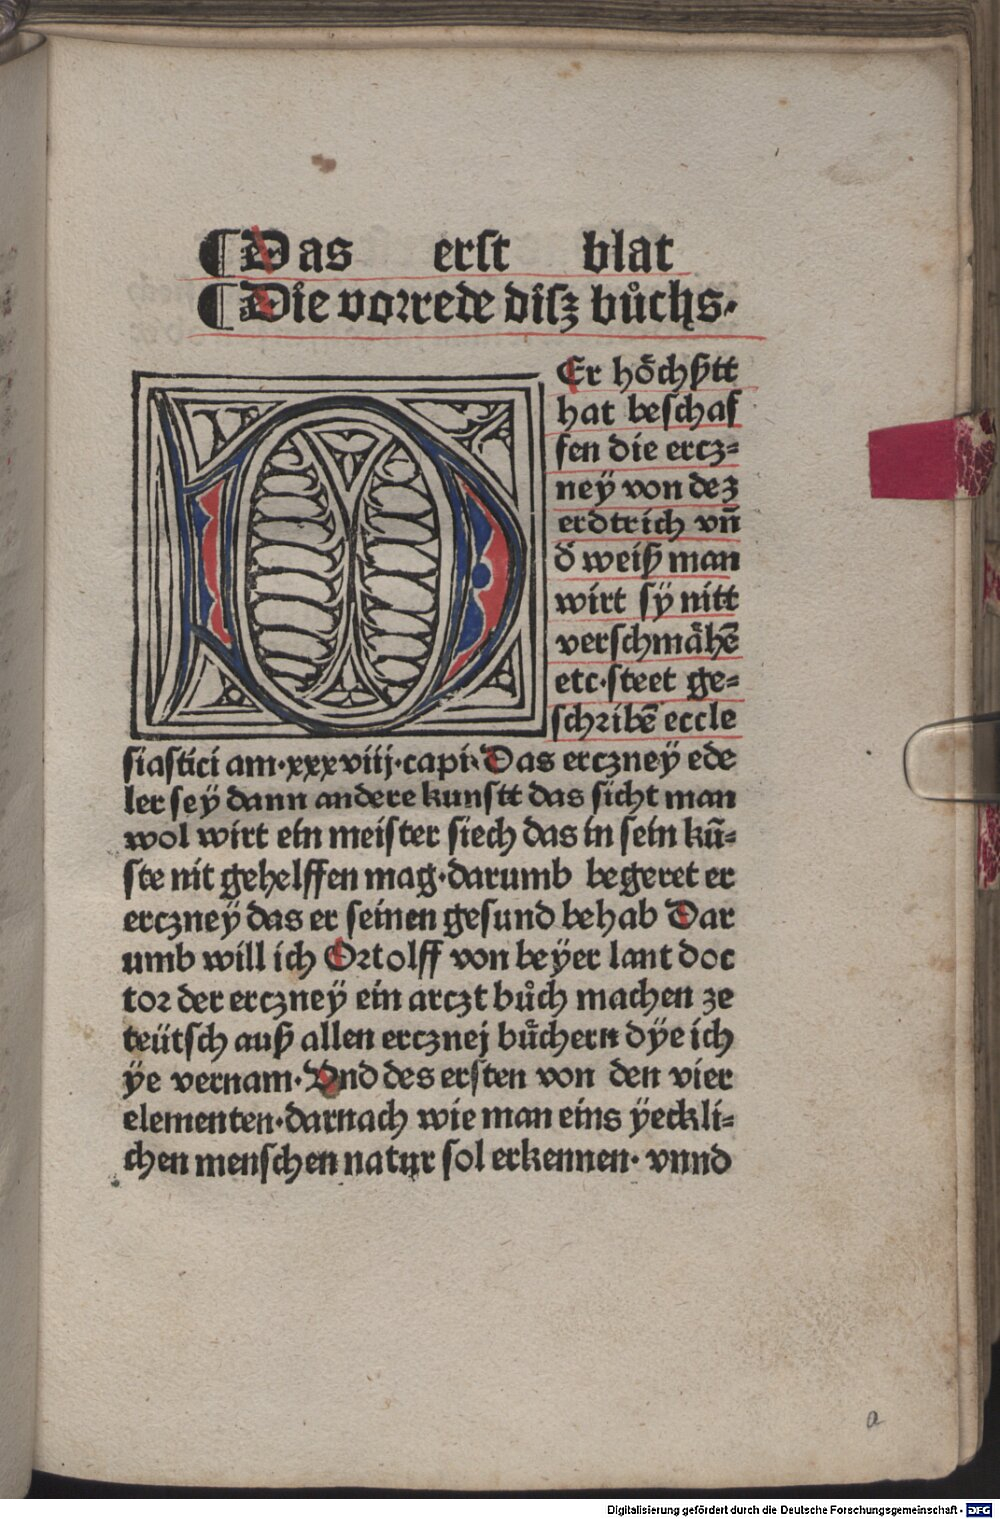 ¶ Das erst blat
¶ Die vorrede disz bůchs.
DEr hoͤchßtt
hat beschaf
fen die ercz=
neÿ von dez
erdtrich vñ
ð weiß man
wirt sÿ nitt
verschmaͤhẽ
etc·steet ge=
schribẽ eccle
siastici am·xxxviij·capi· Das erczneÿ ede
ler seÿ dann andere kunstt das sicht man
wol wirt ein meister siech das in sein kũ=
ste nit gehelffen mag·darumb begeret er
erczneÿ das er seinen gesund behab Dar
umb will ich Ortolff von beÿer lant doc
tor der erczneÿ ein arczt bůch machen ze
teütsch auß allen ercznej buͤchern dÿe ich
ÿe vernam· Vnd des ersten von den vier
elementen·darnach wie man eins ÿeckli=
chen menschen natur sol erkennen· vnnd
a
Digitalisierung gefördert durch die Deutsche Forschungsgemeinschaft - DFG